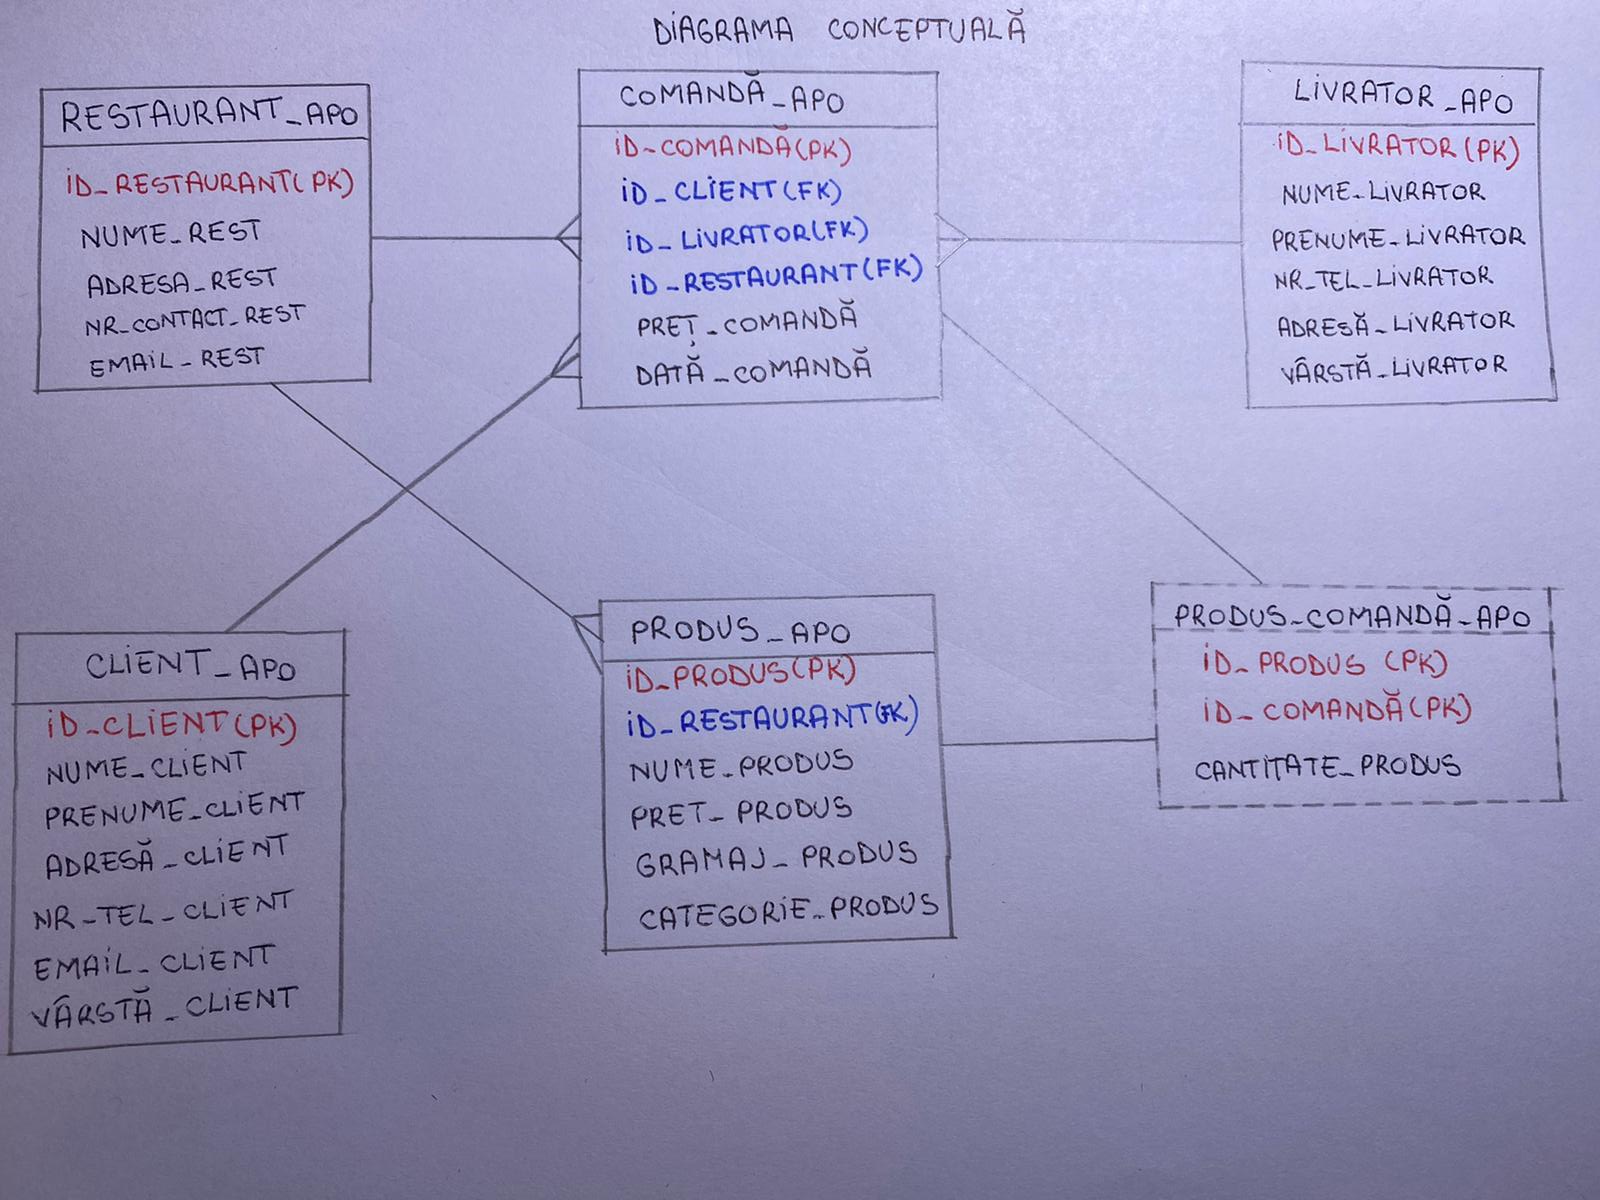 DIAGRAMA CONCEPTUALĂ
RESTAURANT_APO
ID_RESTAURANT(PK)
NUME_REST
ADRESA_REST
NR_CONTACT_REST
EMAIL_REST
COMANDĂ_APO
ID_COMANDĂ(PK)
ID_CLIENT(FK)
ID_LIVRATOR(FK)
ID_RESTAURANT(FK)
PREȚ_COMANDĂ
DATĂ_COMANDĂ
LIVRATOR_APO
ID_LIVRATOR(PK)
NUME_LIVRATOR
PRENUME_LIVRATOR
NR_TEL_LIVRATOR
ADRESĂ_LIVRATOR
VÂRSTĂ_LIVRATOR
CLIENT_APO
ID_CLIENT(PK)
NUME_CLIENT
PRENUME_CLIENT
ADRESĂ_CLIENT
NR_TEL_CLIENT
EMAIL_CLIENT
VÂRSTĂ_CLIENT
PRODUS_APO
ID_PRODUS(PK)
ID_RESTAURANT(FK)
NUME_PRODUS
PRET_PRODUS
GRAMAJ_PRODUS
CATEGORIE_PRODUS
PRODUS_COMANDĂ_APO
ID_PRODUS (PK)
ID_COMANDĂ(PK)
CANTITATE_PRODUS